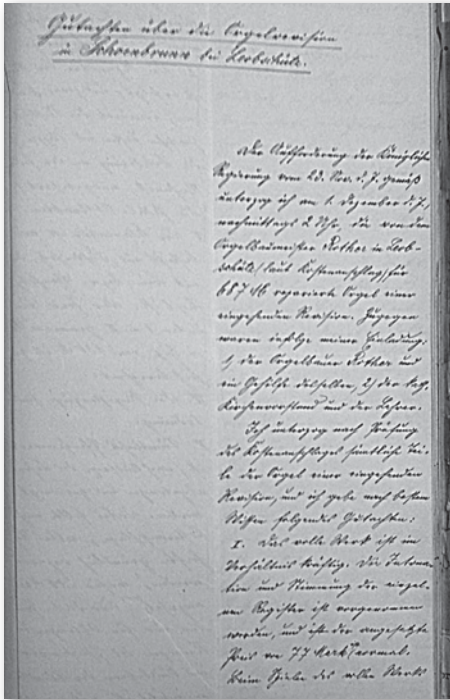 Gutachten über die Orgelrevision
in Schoenbrunn bei Leobschütz.
Der Aufforderung der Königlichen
Regierung vom 23. Nov. d. J. gemäß
unterzog ich am 1. Dezember d. J.,
nachmittags 2 Uhr, die von dem
Orgelbaumeister Kothe in Leob-
schütz (laut Kostenanschlag) für
687 M reparierte Orgel einer
eingehenden Revision. Zugegen
waren infolge meiner Einladung:
1, der Orgelbauer Kothe und
ein Gehilfe desselben, 2) der kath.
Kirchenvorstand und der Lehrer.
Ich unterzog nach Prüfung
des Kostenanschlages sämtliche Tei-
le der Orgel einer eingehenden
Revision, und ich gebe nach bestem
Wissen folgendes Gutachten:
I. Das volle Werk ist im
Verhältnis kräftig. Die Intona-
tion und Stimmung der einzel-
nen Register ist vorgenommen
worden, und ist der angesetzte
Preis von 77 Mark normal.
Beim Spielen des vollen Werks